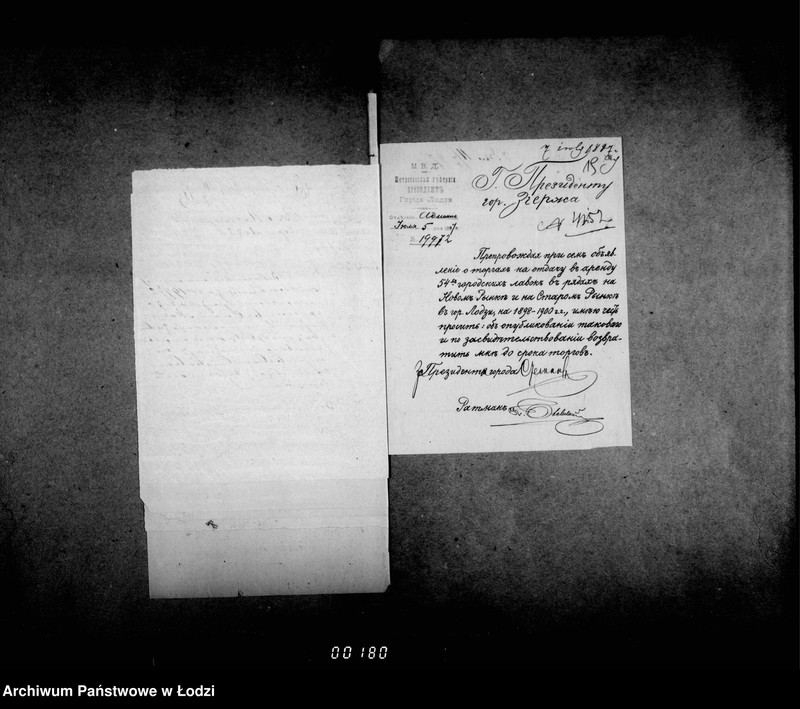 7 1897.
М. В. Д.
Петроковская губернія
ПРЕЗИДЕНТЪ
Города Лодзи
Іюля 5 дня 1897 г.
№ 19972
Г. Президенту
гор. Згержа
№ 4252
Препровождая при семъ объяв-
леніе о торгахъ на отдачу въ аренду
54хъ городскихъ лавокъ въ рядахъ на
Новомъ Рынкѣ и на Старомъ Рынкѣ
въ гор. Лодзи, на 1898-1900 г.г., имѣю честь
просить: объ опубликованіи таковаго
и по засвидѣтельствованіи возвра-
тить мнѣ до срока торговъ.
За Президента города
Ратманъ
00180
Archiwum Państwowe w Łodzi